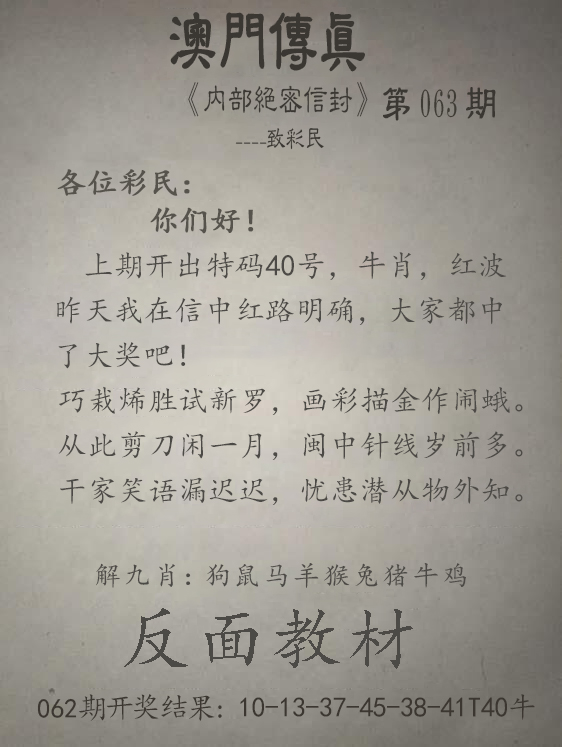 澳門傳真
《内部絕密信封》第063期
----致彩民
各位彩民：
你们好！
上期开出特码40号，牛肖，红波
昨天我在信中红路明确，大家都中
了大奖吧！
巧栽烯胜试新罗，画彩描金作闹蛾。
从此剪刀闲一月，闽中针线岁前多。
干家笑语漏迟迟，忧患潜从物外知。
解九肖：狗鼠马羊猴兔猪牛鸡
反面教材
062期开奖结果：10-13-37-45-38-41T40牛